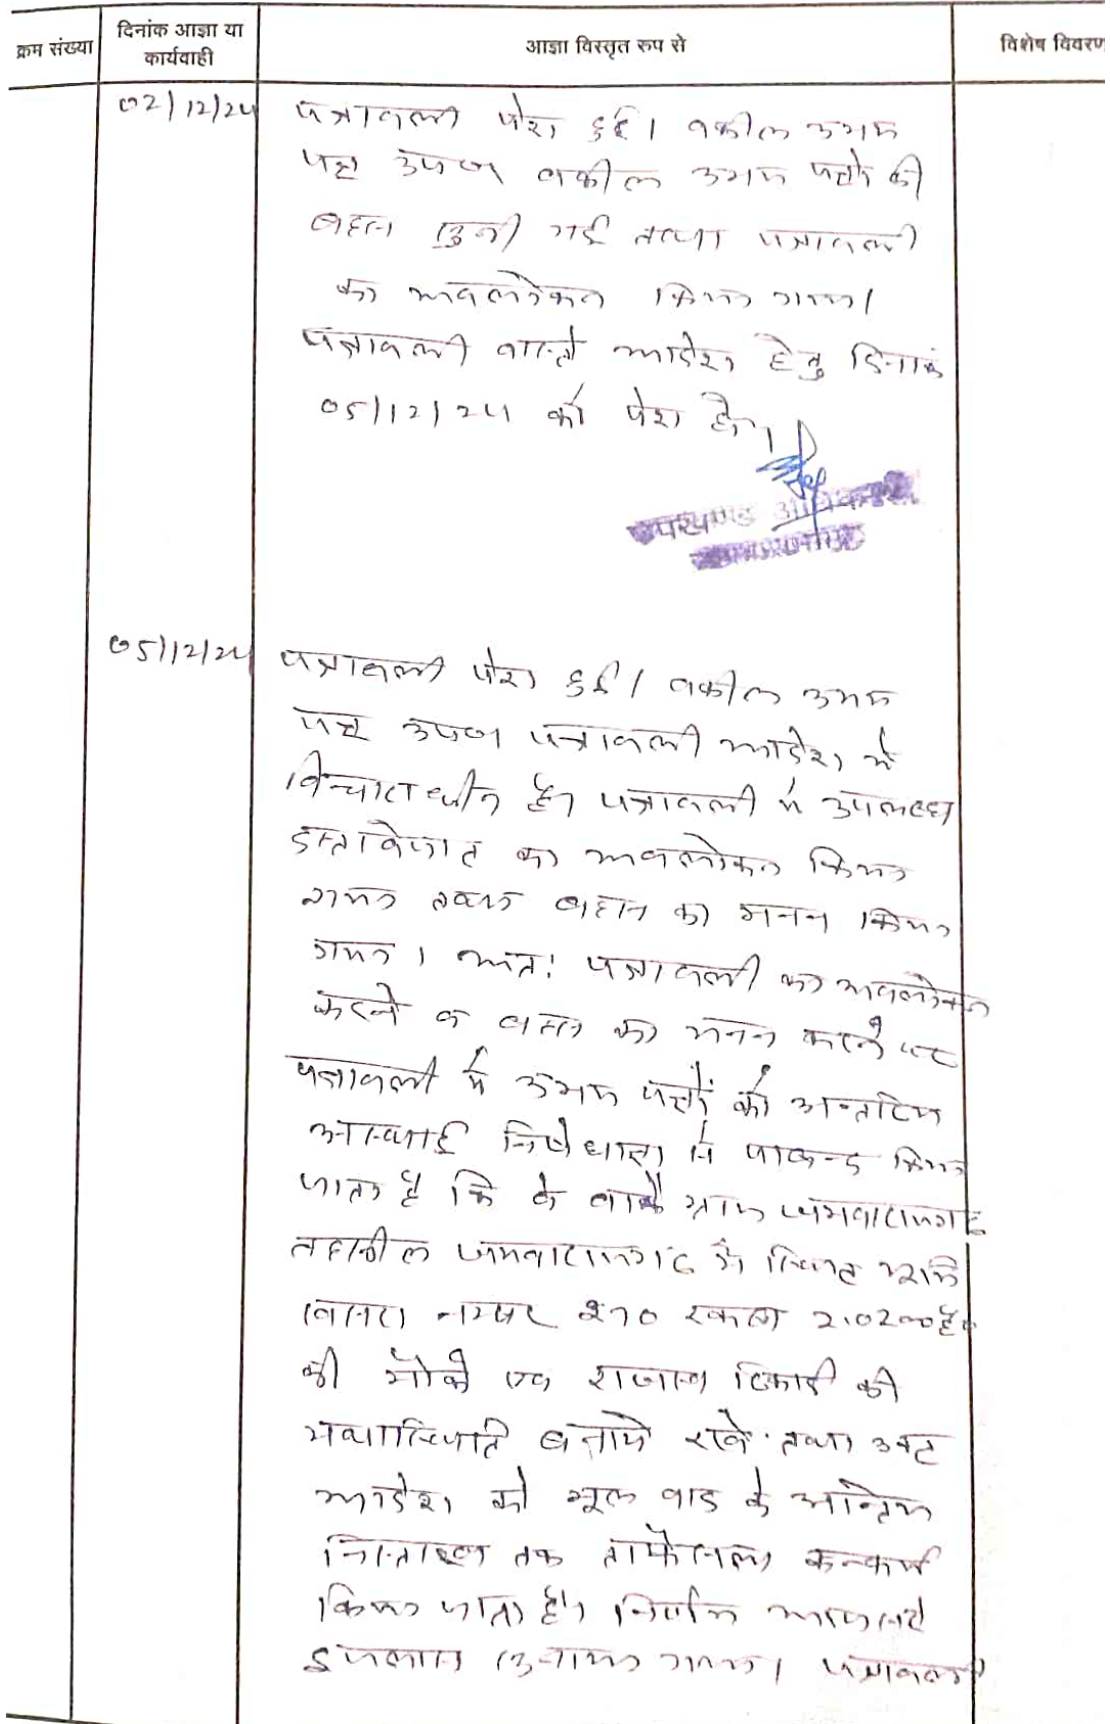 क्रम संख्या
दिनांक आज्ञा या
कार्यवाही
आज्ञा विस्तृत रुप से
विशेष विवरण
02/12/24
पत्रावली पेश हुई। वकील उभय
पक्ष उपo वकील उभय पक्षों की
बहस सुनी गई तथा पत्रावली
का अवलोकन किया गया।
पत्रावली वास्ते आदेश हेतु दिनांक
05/12/24 को पेश हो।
उपखण्ड अधिकारी
05/12/24
पत्रावली पेश हुई। वकील उभय
पक्ष उपo पत्रावली आदेश में
विचाराधीन है। पत्रावली में उपलब्ध
दस्तावेजात का अवलोकन किया
गया तथा बहस का मनन किया
गया। अत: पत्रावली का अवलोकन
करने व बहस का मनन करने पर
पत्रावली में उभय पक्षों को अन्तरिम
अस्थाई निषेधाज्ञा से पाबन्द किया
जाता है कि वे वाकै ग्राम जमवारामगढ
तहसील जमवारामगढ में स्थित भूमि
खसरा नम्बर 270 रकबा 2.0200 हैo
की मौके एवं राजस्व रिकार्ड की
यथास्थिति बनाये रखे तथा उक्त
आदेश को मूल वाद के अन्तिम
निस्तारण तक ताफैसला कन्फर्म
किया जाता है। निर्णय आज सरे
इजलास सुनाया गया। पत्रावली